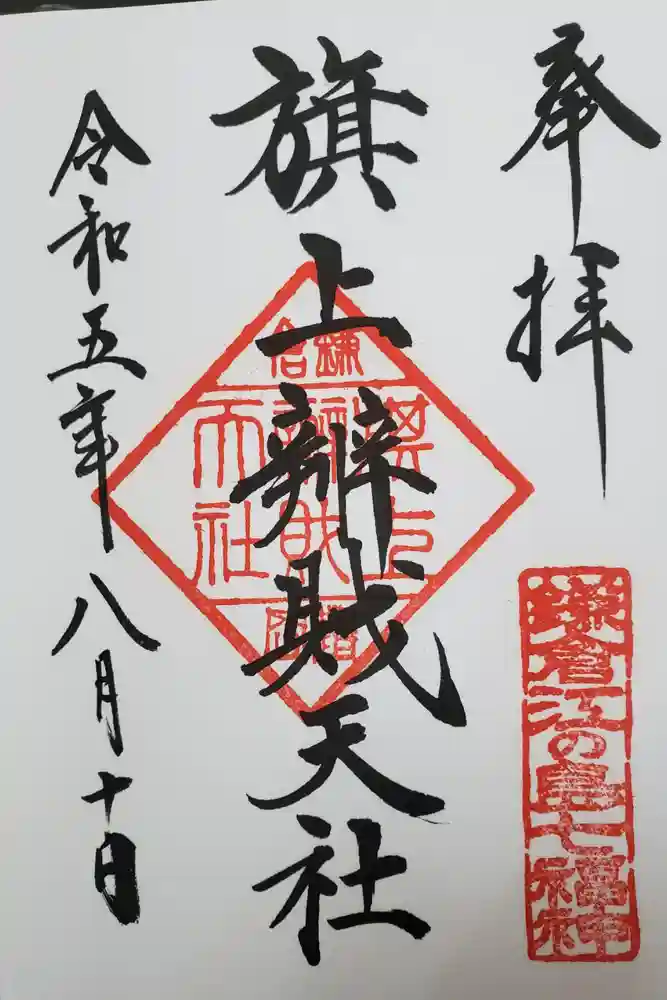 奉拝
鎌倉江の島七福神
旗上辨財天社
鎌倉
旗上
辨財
天社
令和五年八月十日